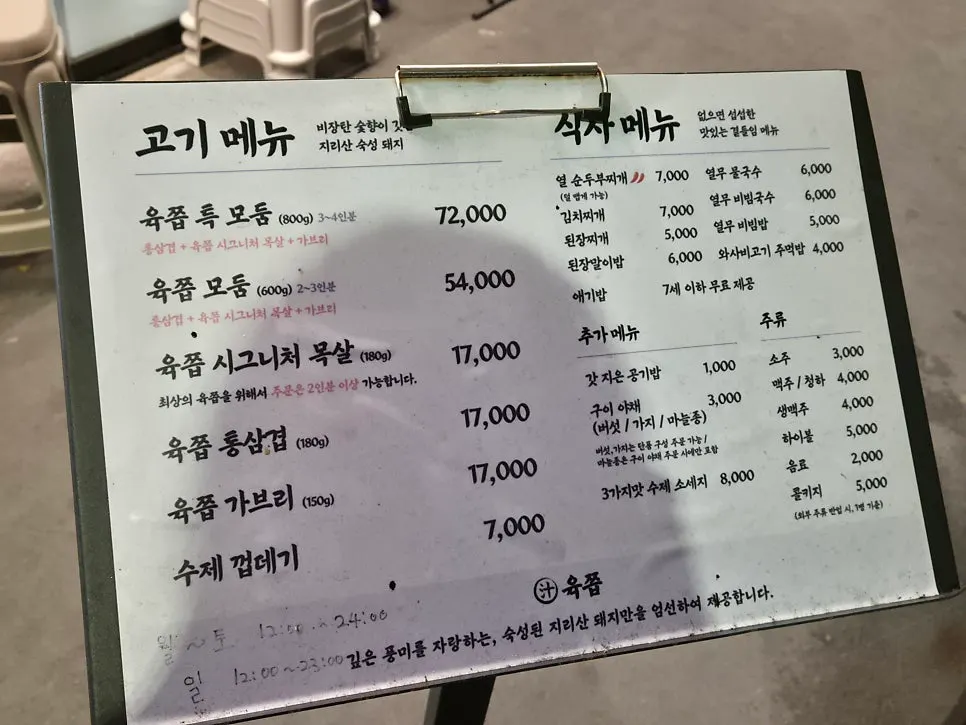 고기 메뉴
비장탄 숯향이
지리산 숙성 돼지
육쫍 특 모둠 (800g) 3~4인분 72,000
통삼겹 + 육쫍 시그니처 목살 + 가브리
육쫍 모둠 (600g) 2~3인분 54,000
통삼겹 + 육쫍 시그니처 목살 + 가브리
육쫍 시그니처 목살 (180g) 17,000
최상의 육쫍을 위해서 주문은 2인분 이상 가능합니다.
육쫍 통삼겹 (180g) 17,000
육쫍 가브리 (150g) 17,000
수제 껍데기 7,000
식사 메뉴
없으면 섭섭한
맛있는 곁들임 메뉴
열 순두부찌개 7,000
(덜 맵게 가능)
김치찌개 7,000
된장찌개 5,000
된장말이밥 6,000
애기밥 7세 이하 무료 제공
열무 물국수 6,000
열무 비빔국수 6,000
열무 비빔밥 5,000
와사비고기 주먹밥 4,000
추가 메뉴
갓 지은 공기밥 1,000
구이 야채 3,000
(버섯 / 가지 / 마늘종)
버섯,가지는 단품 구성 주문 가능 /
마늘종은 구이 야채 주문 시에만 포함
3가지맛 수제 소세지 8,000
주류
소주 3,000
맥주 / 청하 4,000
생맥주 4,000
하이볼 5,000
음료 2,000
콜키지 5,000
(외부 주류 반입 시, 1병 기준)
汁 육쫍
깊은 풍미를 자랑하는, 숙성된 지리산 돼지만을 엄선하여 제공합니다.
월~토 12:00~24:00
일 12:00~23:00